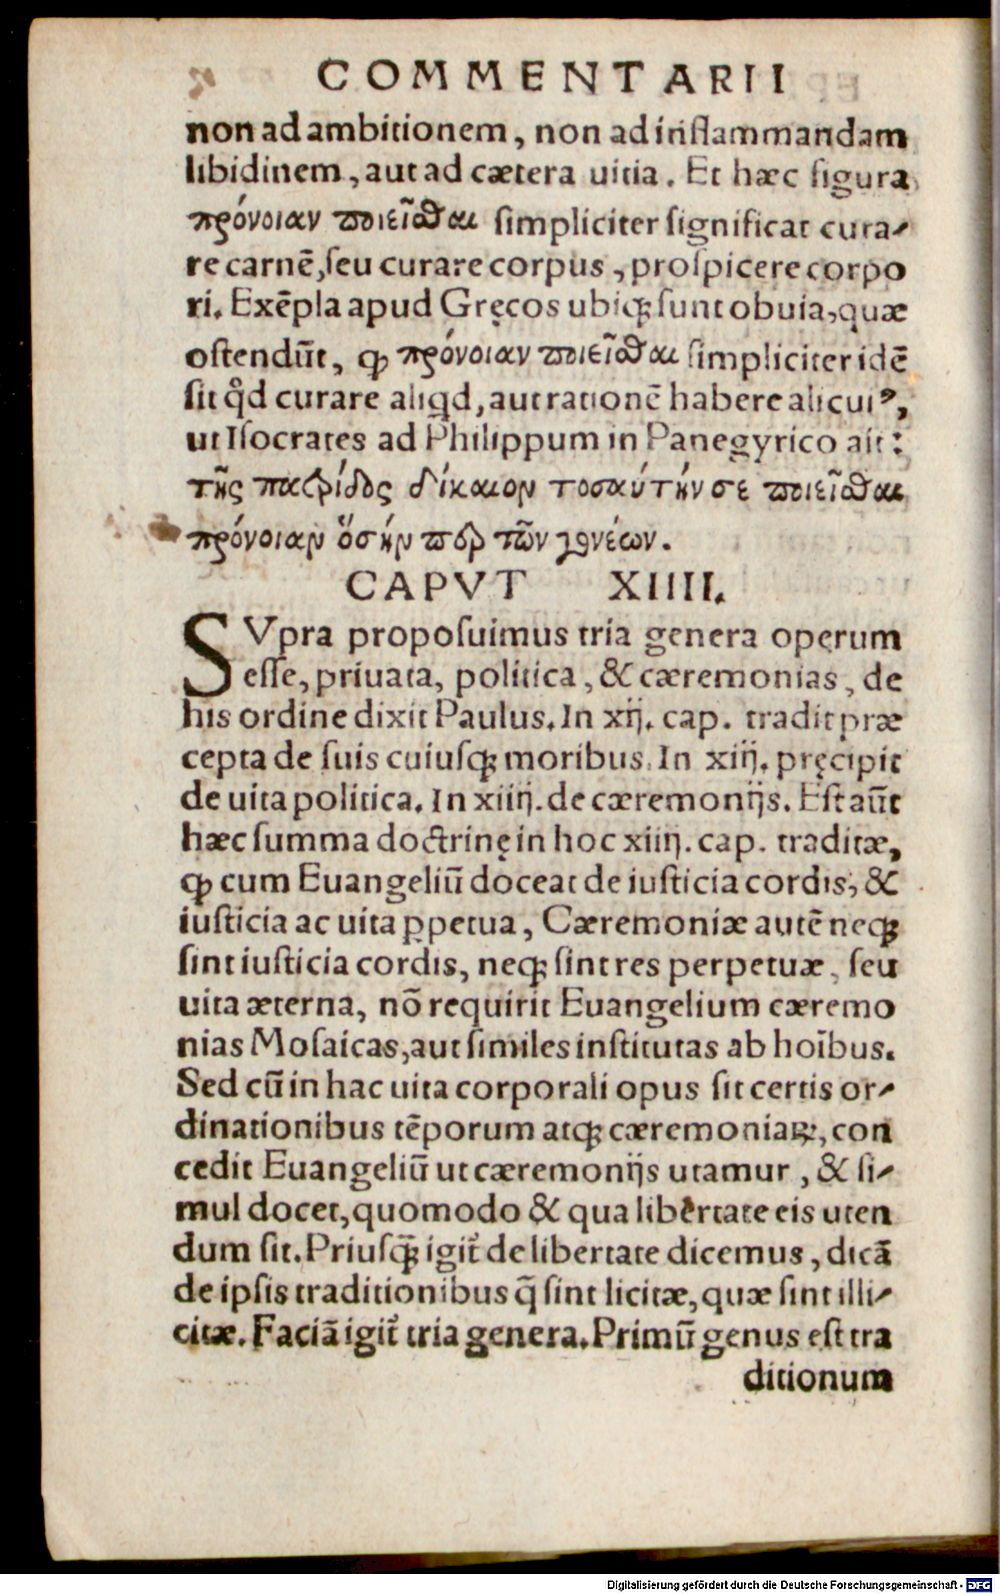 COMMENTARII
non ad ambitionem, non ad inflammandam
libidinem, aut ad cætera uitia. Et hæc figura
πρόνοιαν ποιεῖσθαι simpliciter significat cura-
re carnẽ, seu curare corpus, prospicere corpo
ri. Exẽpla apud Gręcos ubiq; sunt obuia, quæ
ostendũt, ꝙ πρόνοιαν ποιεῖσθαι simpliciter idẽ
sit qd̉ curare aliqd, aut rationẽ habere alicuiꝰ,
ut Isocrates ad Philippum in Panegyrico ait:
τῆς πατρίδος δίκαιον τοσαύτην σε ποιεῖσθαι
πρόνοιαν ὅσην περ τῶν γονέων.
CAPVT XIIII.
SVpra proposuimus tria genera operum
esse, priuata, politica, & cæremonias, de
his ordine dixit Paulus. In xij. cap. tradit præ
cepta de suis cuiusq; moribus. In xiij. pręcipit
de uita politica. In xiiij. de cæremonijs. Est aũt
hæc summa doctrinę in hoc xiiij. cap. traditæ,
ꝙ cum Euangeliũ doceat de iusticia cordis, &
iusticia ac uita ꝑpetua, Cæremoniæ autẽ neq;
sint iusticia cordis, neq; sint res perpetuæ, seu
uita æterna, nõ requirit Euangelium cæremo
nias Mosaicas, aut similes institutas ab hoĩbus.
Sed cũ in hac uita corporali opus sit certis or-
dinationibus tẽporum atq; cæremoniaꝝ, con
cedit Euangeliũ ut cæremonijs utamur, & si-
mul docet, quomodo & qua libertate eis uten
dum sit. Priusq̃ igit̃ de libertate dicemus, dicã
de ipsis traditionibus q̃ sint licitæ, quæ sint illi-
citæ. Faciã igit̃ tria genera. Primũ genus est tra
ditionum
Digitalisierung gefördert durch die Deutsche Forschungsgemeinschaft - DFG